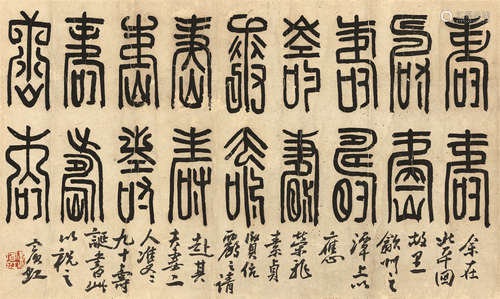 壽壽壽壽壽壽壽壽壽
壽壽壽壽壽壽壽壽壽
余在
北平回
故里
歙州之
潭上以
應
素貞
賢伉
儷之請
赴其
夫妻二
人雙
九十壽
誕書此
以祝之
賓虹